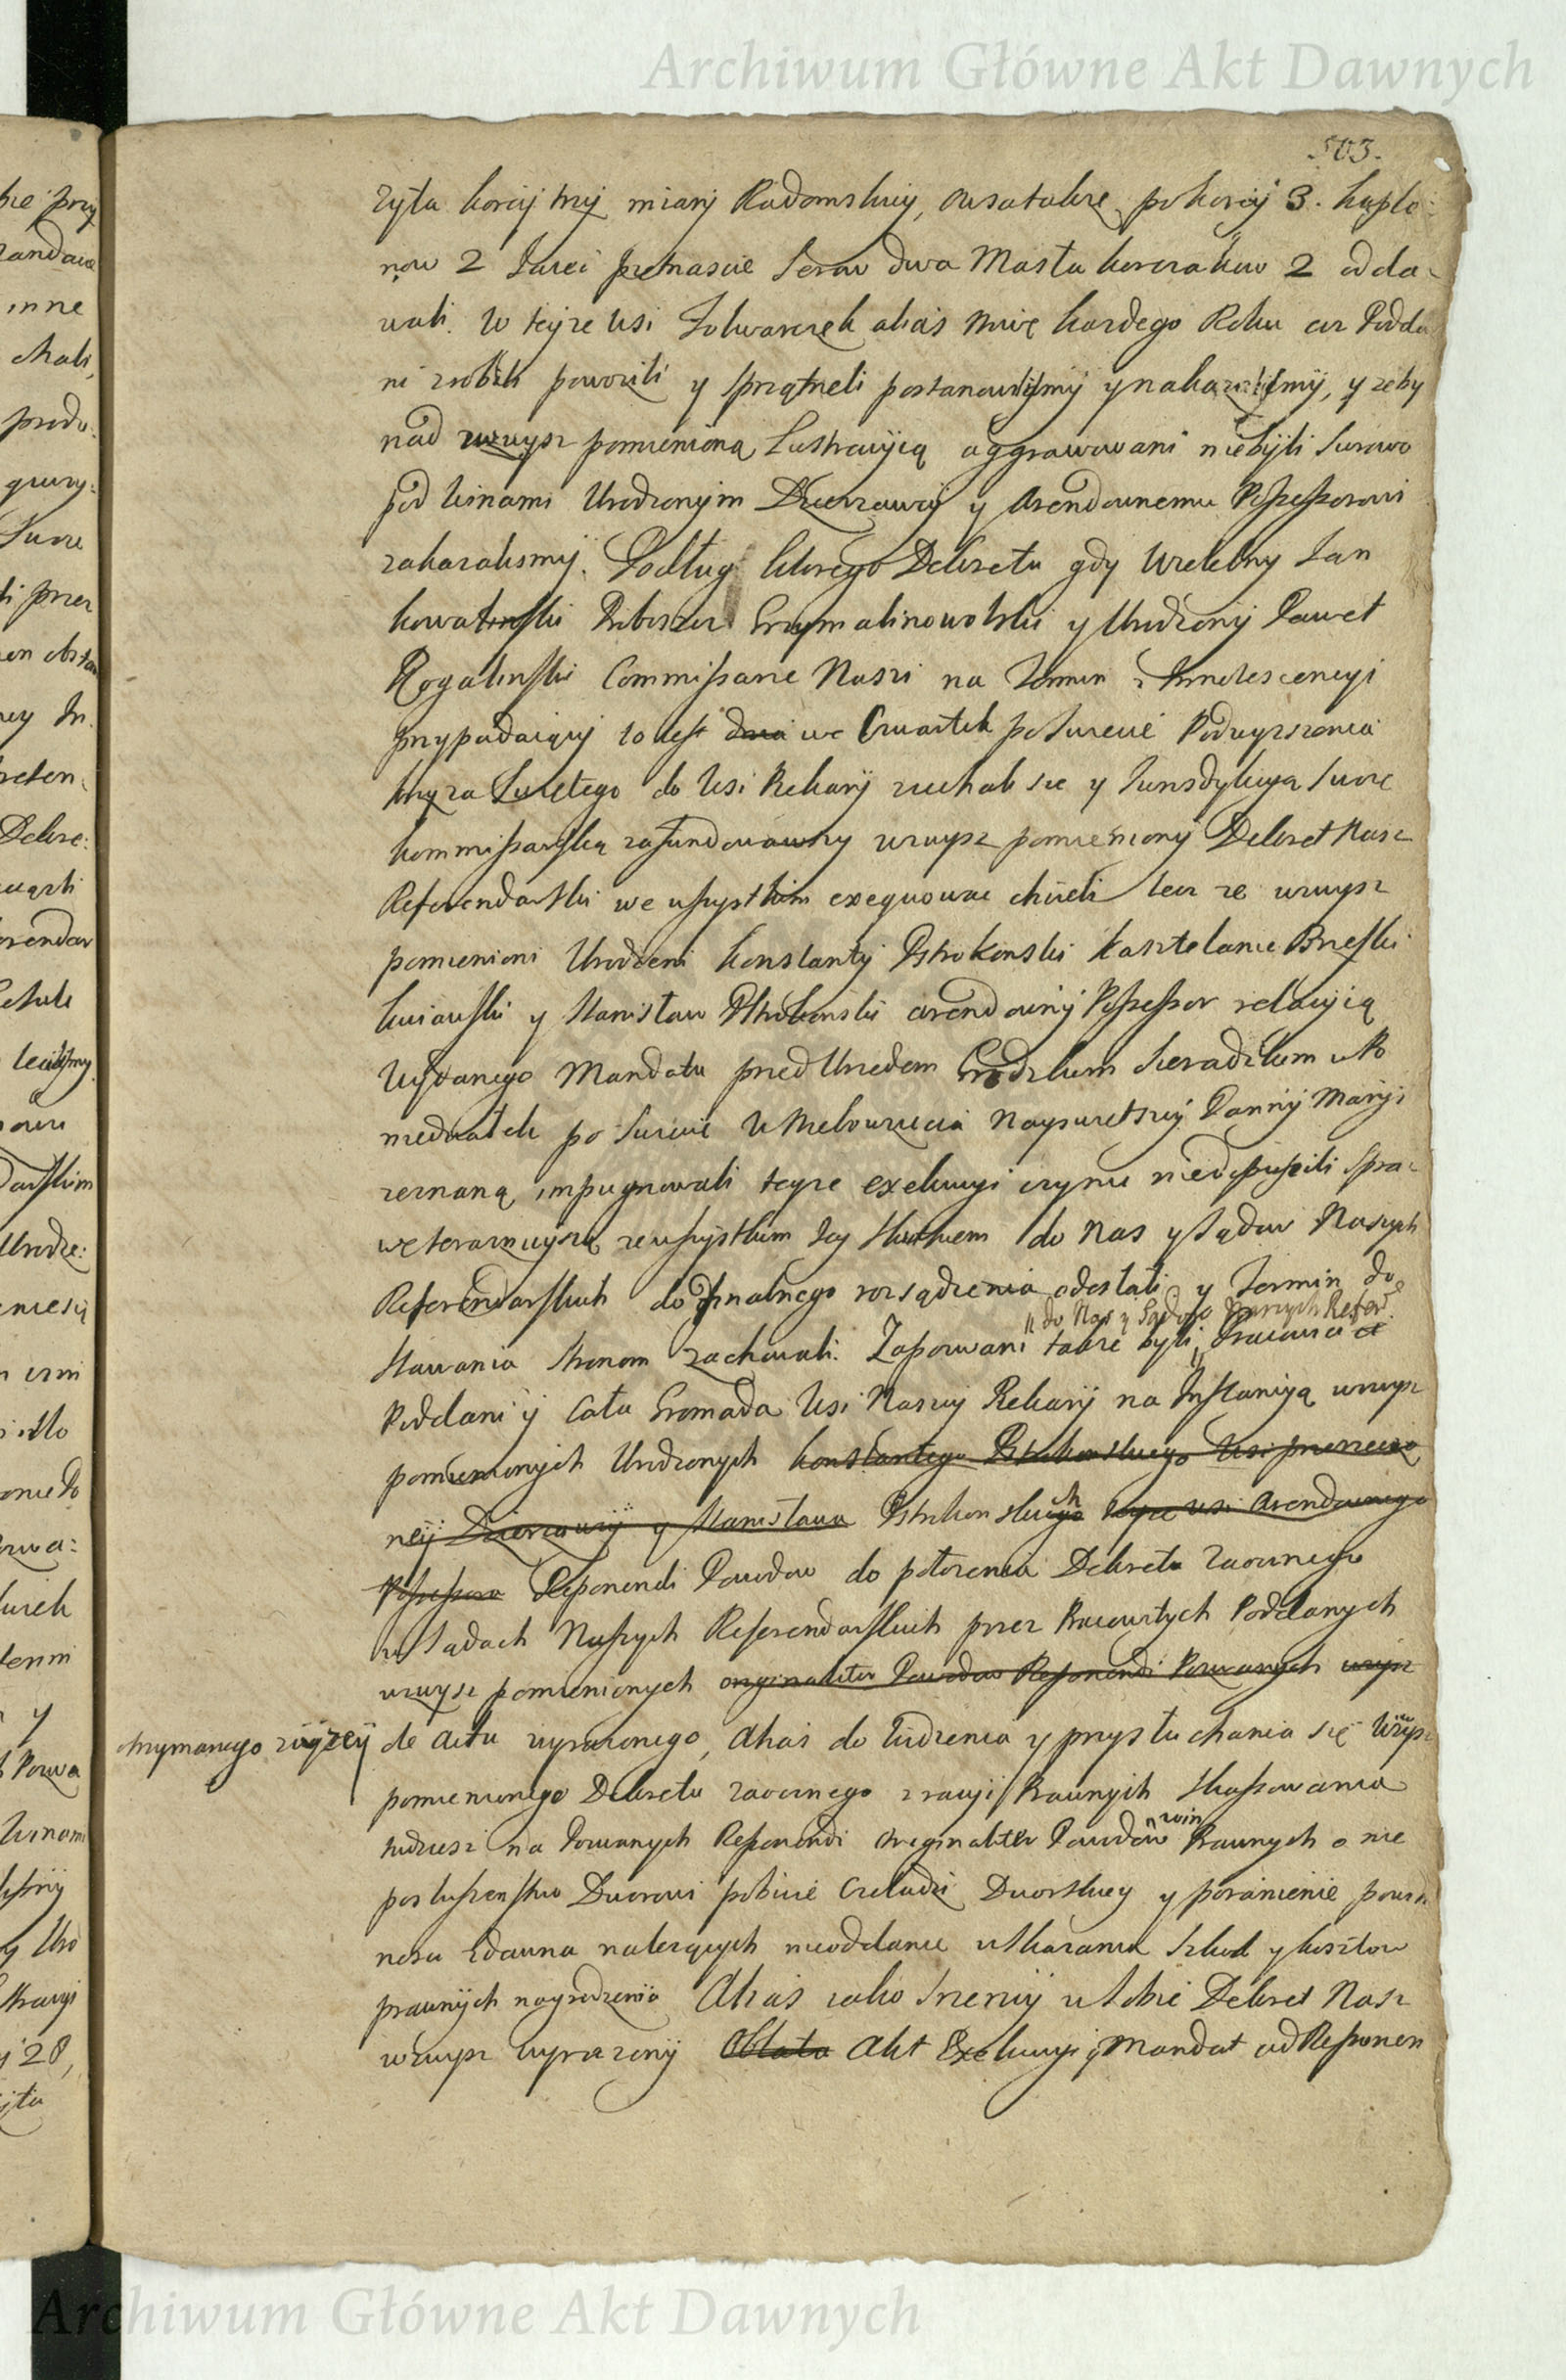 Archiwum Główne Akt Dawnych
503.
zyta korcy trzy miary Radomskiey, owsa takze po korcy 3. kapło-
now 2 Jaiec pietnascie Serow dwa Masła kwarty 2 odda-
wali. W teyze wsi Folwarczek alias Niwę kazdego Roku az Podda
ni zrobili powozili y sprzątneli postanowilismy y nakazalismy, y zeby
nad wzwysz pomienioną Lustracyią aggrawowani niebyli Surowo
pod winami Urodzonym Dzierzawcy y Arendownemu Possessorowi
zakazalismy. Podług ktorego Dekretu gdy Wielebny Jan
Kowalinski Proboszcz Grzymalinowolski y Urodzony Paweł
Rogalinski Commissarze Naszi na Termin z Innotescencyi
przypadaiący to iest dnia we Czwartek po Swięcie Podwyzszenia
krzyza Swiętego do Wsi Rekary ziechali sie y Jurisdykcyą Swoię
kommissarską zafundowawszy wzwysz pomieniony Dekret Nasz
Referendarski we wszystkim exequowac chcieli lecz ze wzwysz
pomienioni Urodzeni Konstanty Pstrokonski Kasztelanic Brzeski
kuiawski y Stanisław Pstrokonski arendowny Possessor relacyią
wydanego Mandatu przed Urzedem Grodzkim Sieradzkim w Po
niedziałek po Swięcie W Niebowzięcia Nayswietszey Panny Maryi
zeznaną, impugnowali teyze exekucyi czynic niedopuscili spra-
wę teraznieyszą ze wszystkim Jey Skutkiem do Nas y Sądow Naszych
Referendarskich do finalnego rozsądzenia odesłali y Termin do
" do Nas y Sądow Naszych Refer.
stawania Stronom zachowali. Zapozwani takze byli, Pracowici
Poddani y Cała Gromada Wsi Naszey Rekary na Instancyą wzwysz
pomienionych Urodzonych Konstantego Pstrokonskiego Wsi pomienio
ney Dzierzawcy y Stanisława Pstrokonskich teyze wsi Arendownego
Possessora Reponendi Powodow do połozenia Dekretu zaocznego
w Sądach Naszych Referendarskich przez Pracowitych Poddanych
wzwysz pomienionych originaliter Powodow Reponendi Pozwanych wzysz
otrzymanego nizey de actu wyrazonego, alias do widzenia y przysłuchania się wzwysz
pomienionego Dekretu zaocznego z racyi Prawnych Skassowania
tudziesz na Pozwanych Reponendi Originaliter Powodow win Prawnych o nie
posłuszenstwo Dworowi pobicie Czeladzi Dworskiey y poranienie powin
nosci zdawna nalezących nieoddanie wskazania szkod y kosztow
prawnych nagrodzenia Alias iako szerzey w Sobie Dekret Nasz
wzwysz wyrazony Oblata Akt Exekucyi y Mandat od Reponen
Archiwum Główne Akt Dawnych